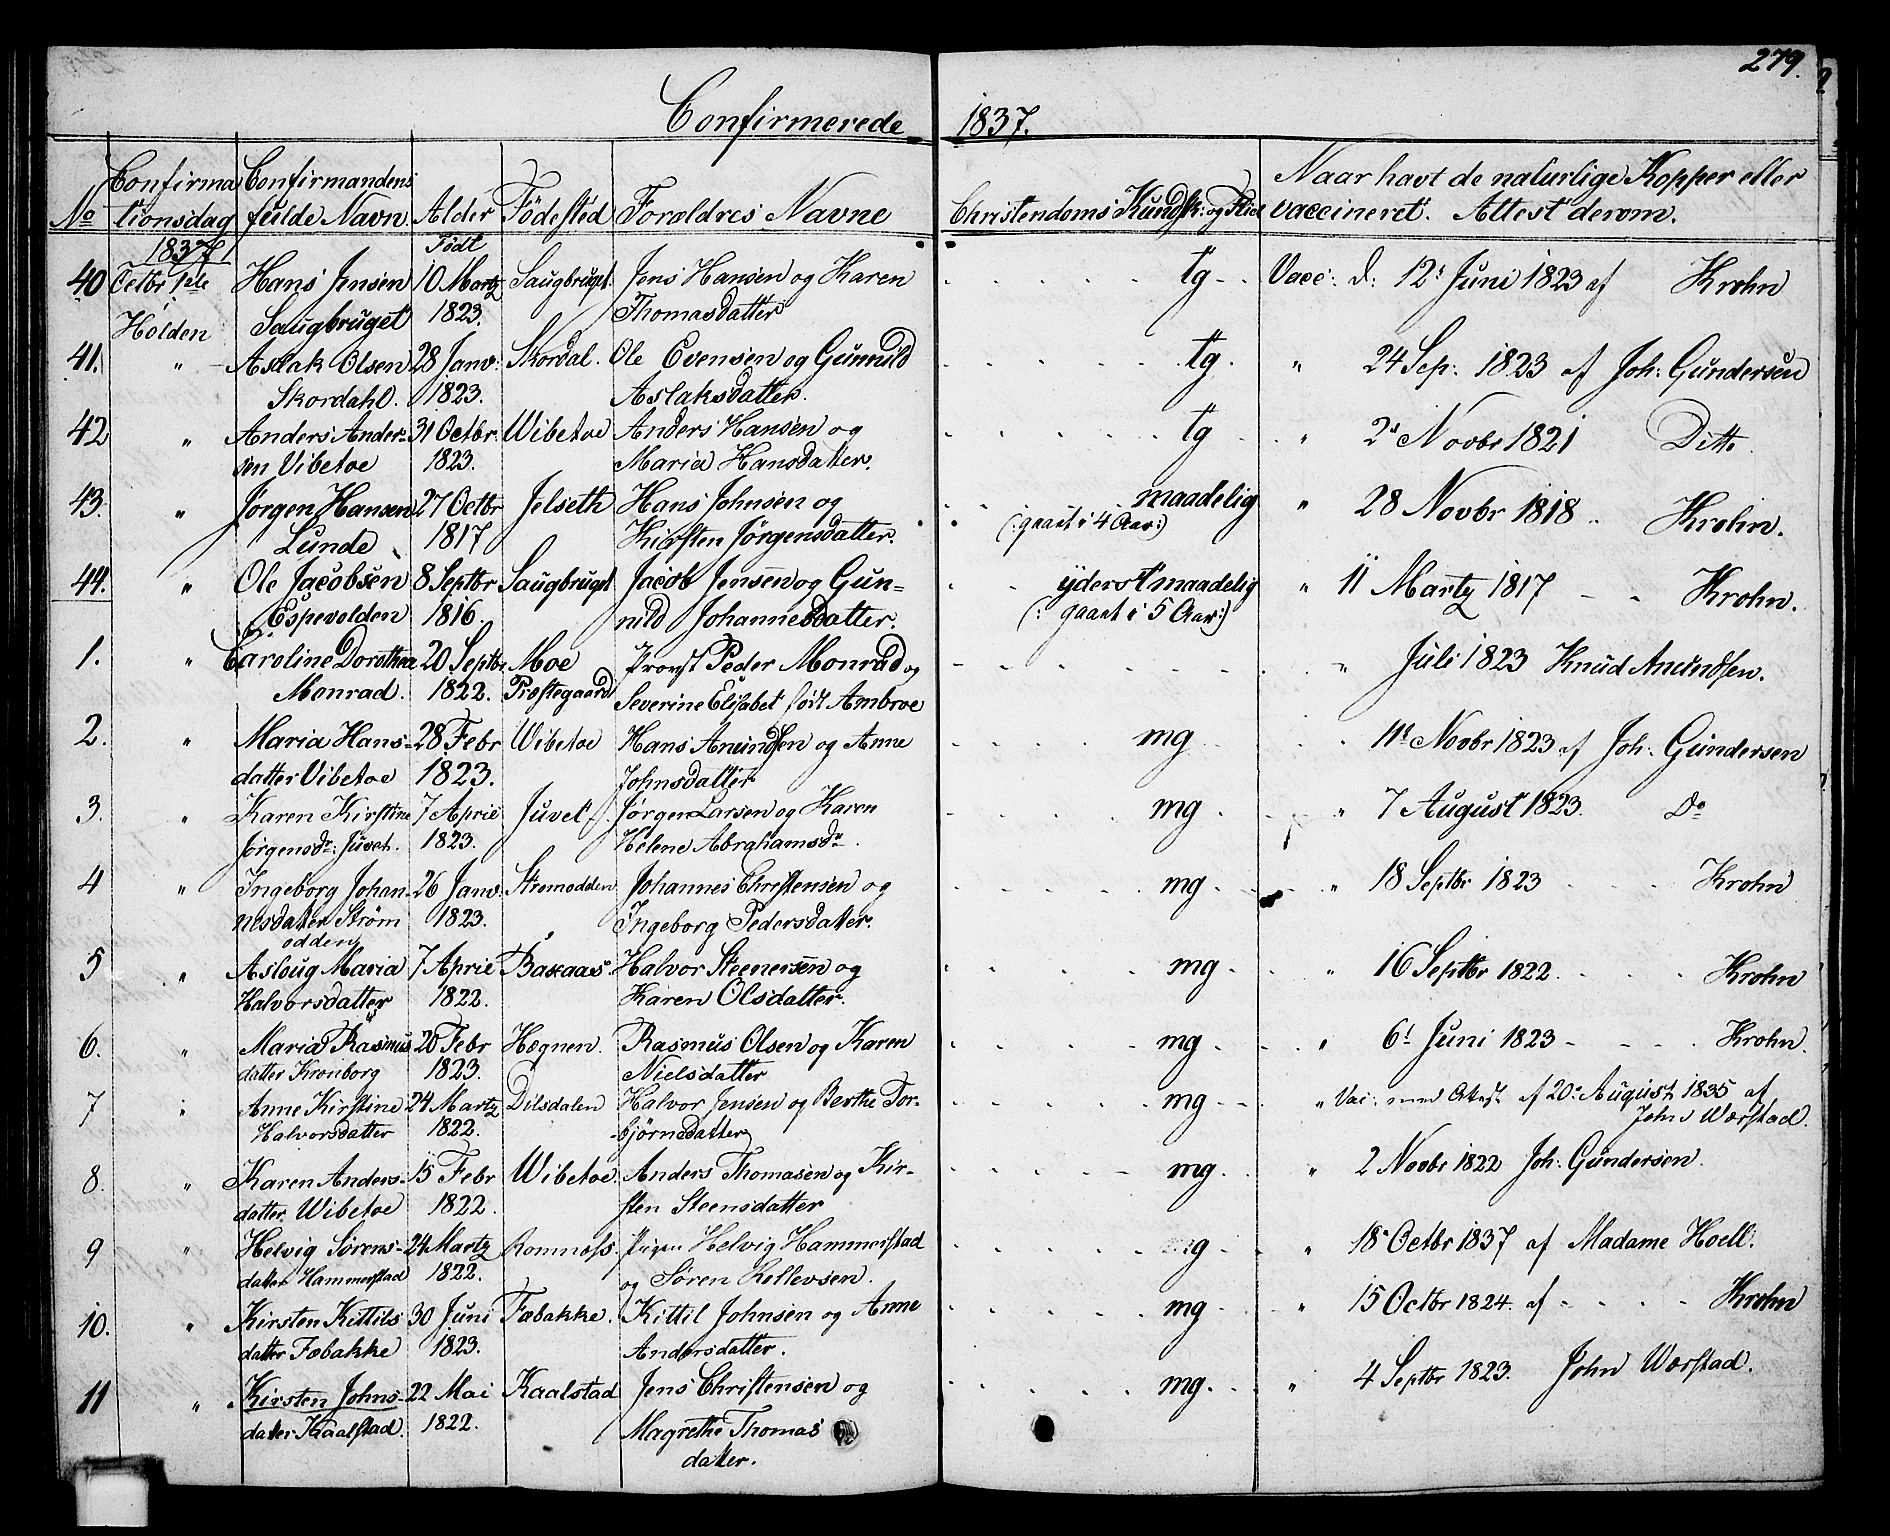 279.
Confirmerede 1837.
No Confirmationsdag Confirmandens fulde Navn Alder Födested Forældres Navne Christendoms Kundsk: og Flid Naar havt de naturlige Kopper eller vaccineret. Attest derom.
1837 Födt
40 Octbr 1ste Hans Jensen 10 Martz Saugbruget Jens Hansen og Karen tg Vacc: d: 12t Juni 1823 af Krohn
Holden Saugbruget 1823. Thomasdatter
41. " Aslak Olsen 28 Janv: Skordal. Ole Evensen og Gunnild tg. " 24 Sep: 1823 af Joh: Gundersen
Skordahl. 1823. Aslaksdatter.
42 " Anders Ander- 31 Octbr Wibetoe Anders Hansen og tg " 2t Novbr 1821 Ditto
sen Vibetoe 1823. Maria Hansdatter.
43. " Jørgen Hansen 27 Octbr Jelseth Hans Johnsen og maadelig " 28 Novbr 1818 Krohn.
Lunde 1817 Kirsten Jörgensdatter. (: gaaet i 4 Aar:)
44. " Ole Jacobsen 8 Septbr Saugbruget Jacob Jensen og Gun- yderst maadelig " 11 Martz 1817 Krohn.
Espevolden 1816. nild Johannesdatter. (: gaaet i 5 Aar:)
1. " Caroline Dorothea 20 Septbr Moe Provst Peder Monrad og " Juli 1823 Knud Anundsen.
Monrad. 1822. Præstegaard Severine Elisabet født Ambroe
2. " Maria Hans- 28 Febr Wibetoe Hans Anundsen og Anne mg 11t Novbr 1823 af Joh: Gundersen
datter Vibetoe 1823. Johnsdatter
3. " Karen Kirstine 7 April Juvet Jørgen Larsen og Karen mg " 7 August 1823. Do
Jørgensdr: Juvet. 1823. Helene Abrahamsdr.
4 " Ingeborg Johan- 26 Janv. Strømodden Johannes Christensen og mg " 18 Septbr 1823 Krohn
nesdatter Strøm 1823. Ingeborg Pedersdatter.
odden
5 " Asloug Maria 7 April Bakaas Halvor Steenersen og mg " 16 Septbr 1822. Krohn
Halvorsdatter 1822. Karen Olsdatter.
6. " Maria Rasmus 20 Febr Hægnen. Rasmus Olsen og Karen mg " 6t Juni 1823 Krohn.
datter Kronborg 1823. Nielsdatter
7 " Anne Kirstine 24 Martz Dilsdalen Halvor Jensen og Berthe Tor- mg " Vac: med Attest af 20t August 1835 af
Halvorsdatter 1822. björnsdatter John Wærstad.
8. " Karen Anders- 15 Febr Wibetoe. Anders Thomasen og Kir- mg. " 2 Novbr 1822 Joh: Gundersen.
datter Wibetoe 1822. sten Steensdatter
9 " Helvig Sørens- 24 Martz Romnæs. Pigen Helvig Hammerstad mg " 18t Octbr 1837 af Madame Hoell.
datter Hammerstad 1822. og Søren Kellevsen.
10. " Kirsten Kittils 30 Juni Fæbakke. Kittil Johnsen og Anne mg " 15 Octbr 1824 af Krohn
datter Fæbakke 1823. Andersdatter.
11 " Kirsten Johns- 22 Mai Kaalstad Jens Christensen og mg. " 4 Septbr 1823. John Wærstad.
datter Kaalstad. 1822. Magrethe Thomas
datter.